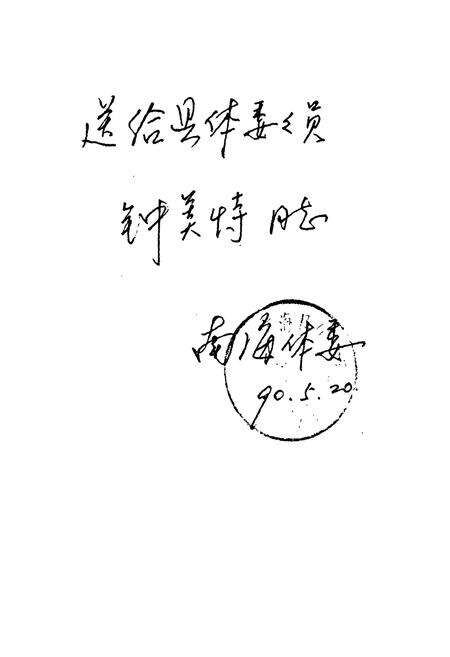 送给县体委委员
钟美特同志
南海体委
90.5.20